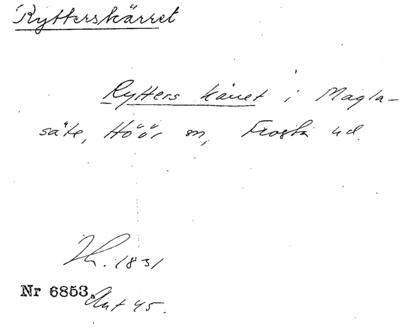 Rytterskärret
Rytters käret i Magla-
säte, Höör sn, Frosta hd.
Th. 1831
Nr 6853
Ant 45.